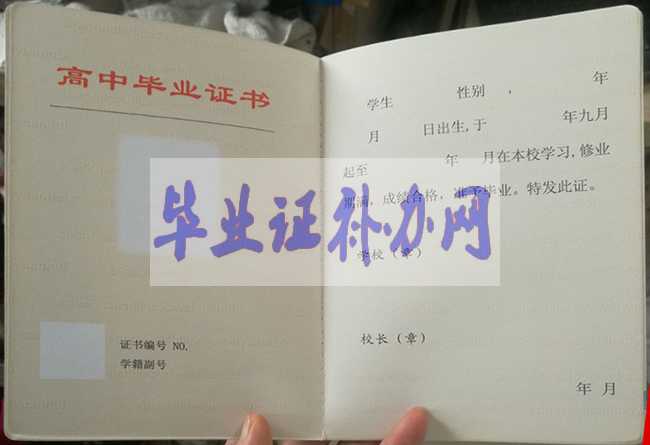 高中毕业证书
证书编号 NO.
学籍副号
学生 性别 , 年
月 日出生,于 年九月
起至 年 月在本校学习,修业
期满,成绩合格,准予毕业。特发此证。
毕业证补办网
学校(章)
校长(章)
年 月